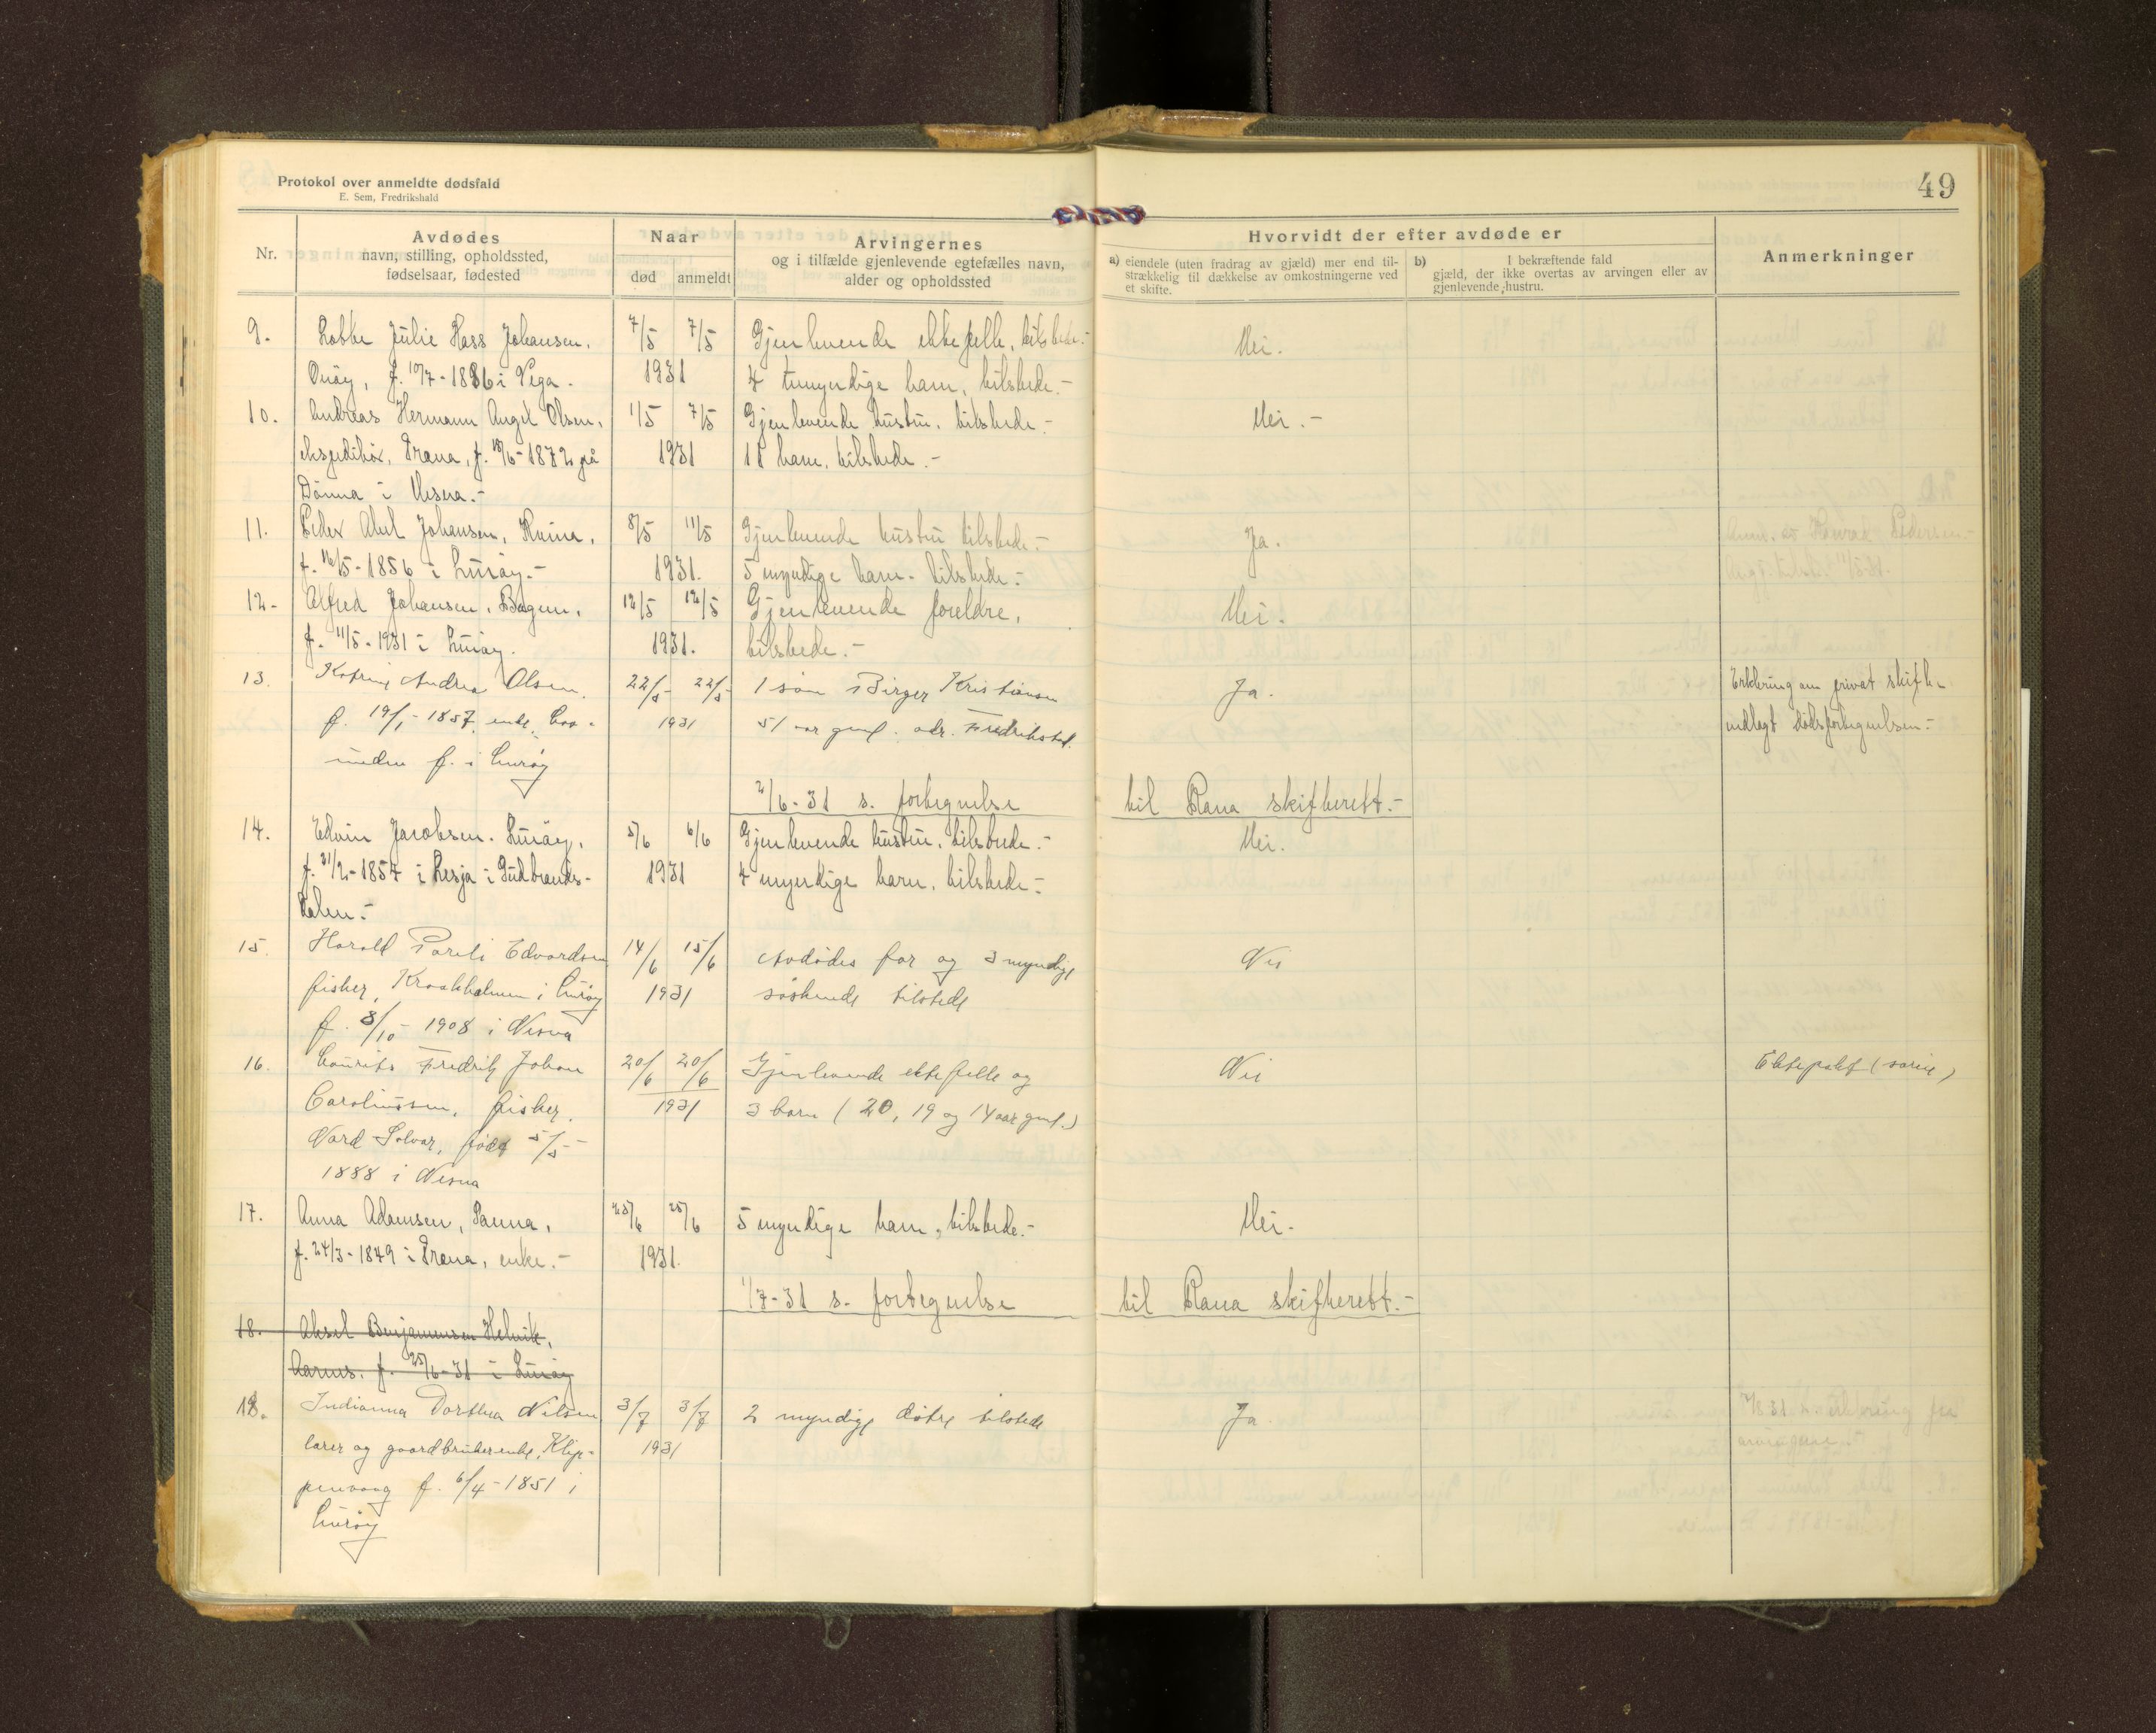 Protokol over anmeldte dødsfald
E. Sem, Fredrikshald
49
Nr.
Avdødes
navn, stilling, opholdssted,
fødselsaar, fødested
Naar
død
anmeldt
Arvingernes
og i tilfælde gjenlevende egtefælles navn,
alder og opholdssted
Hvorvidt der efter avdøde er
a) eiendele (uten fradrag av gjæld) mer end til-
strækkelig til dækkelse av omkostningerne ved
et skifte.
b) I bekræftende fald
gjæld, der ikke overtas av arvingen eller av
gjenlevende hustru.
Anmerkninger
9. Julie Hass Johansen, 7/5 7/5 Gjenlevende ektefelle, tilstede.- Nei.
Onøy, f. 10/7-1886 i Vega.- 1931 4 umyndige barn, tilstede.-
10. Andreas Hermann Angel Olsen, 1/5 7/5 Gjenlevende hustru, tilstede.- Nei.-
ekspeditør, Træna, f. 18/6-1872 på 1931 11 barn, tilstede.-
Dønna i Nesna.-
11. Peder Abel Johansen, Kvina, 8/5 11/5 Gjenlevende hustru tilstede.- Ja.
f. 16/5-1856 i Lurøy.- 1931. 5 myndige barn. tilstede.-
12.- Alfred Johansen, 12/5 12/5 Gjenlevende foreldre, Nei.
f. 11/5-1931 i Lurøy. 1931. tilstede.-
13. Katrine Andrea Olsen, 22/5- 22/5- 1 søn Birger Kristiansen Ja. Erklæring om privat skifte
f. 19/1-1857, enke, 1931 51 aar gml. adr. Fredrikstad. vedlagt dødsfortegnelsen.-
f. i Lurøy
2/6-31 s. fortegnelse til Rana skifterett.-
14. Edvin Jacobsen. Lurøy, 5/6 6/6 Gjenlevende hustru, tilstede.- Nei.
f. 21/2-1854 i Lesja i Gudbrands- 1931 4 myndige barn, tilstede.-
dalen.-
15. Harald Pareli Edvardsen 14/6 15/6 Avdødes far og 3 myndige Nei
fisker, Kraakholmen i Lurøy 1931 søskende tilstede
f. 8/10- 1908 i Nesna
16. Laurits Fredrik Johan 20/6 20/6 Gjenlevende ektefelle og Nei Ektepakt (særeie)
Caroliussen, fisker, 1931 3 barn (20, 19 og 14 aar gml.)
Nord Solvær, født 5/5-
1888 i Nesna
17. Anna Adamsen, Sanna, 25/6 25/6 5 myndige barn, tilstede.- Nei.
f. 24/3-1849 i Træna, enke.- 1931.
1/7-31 s. fortegnelse til Rana skifterett.-
18. Aksel Benjaminsen Helvik,
Aarnes. f. 25/6-31 i Lurøy
18. Indianna Dorthea Nilsen 3/7 3/7 2 myndige døtre tilstede Ja.
lærer og gaardbrukerenke, Klip-
1931
penvaag f. 6/4-1851 i
Lurøy